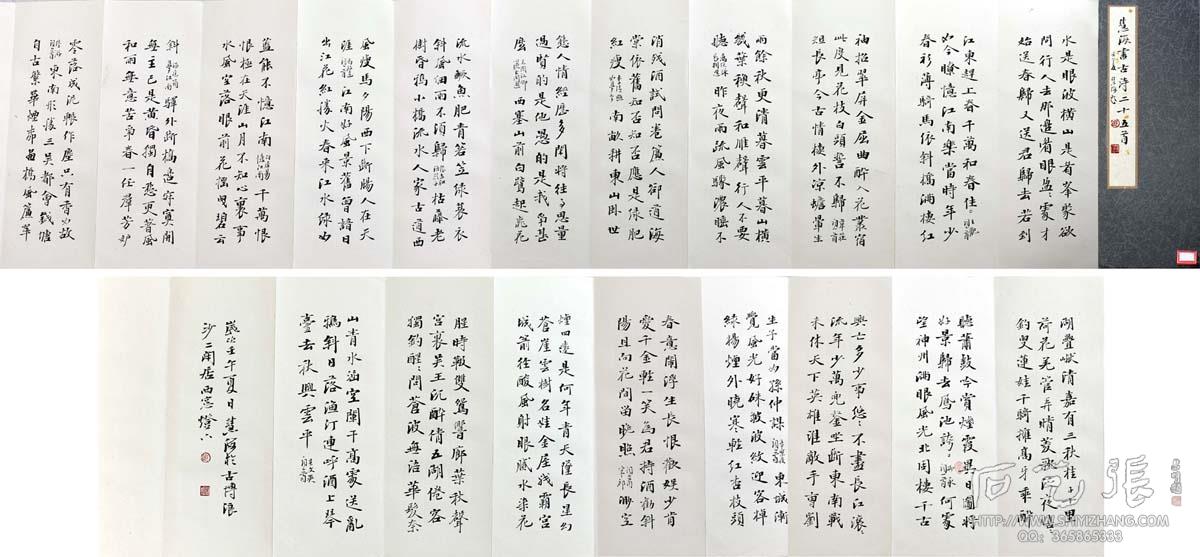 水是眼波橫山是眉峯聚欲
問行人去那邊眉眼盈盈處才
始送春歸又送君歸去若到
江東趕上春千萬和春住
如今卻憶江南樂當時年少
春衫薄騎馬依斜橋滿樓紅
袖招翠屏金屈曲醉入花叢宿
此度見花枝白頭誓不歸 韋莊
徂長亭今古情樓外涼蟾暈生
雨餘秋更清暮雲平暮山橫
幾葉秋聲和雁聲行人不要
聽 昨夜雨疏風驟濃睡不
消殘酒試問卷簾人卻道海
棠依舊知否知否應是綠肥
紅瘦 南畝耕東山卧世
態人情經歷多閑將往事思量
過賢的是他愚的是我爭甚
麼 西塞山前白鷺起桃花
流水鱖魚肥青箬笠綠蓑衣
斜風細雨不須歸 枯藤老
樹昏鴉小橋流水人家古道西
風瘦馬夕陽西下斷腸人在天
涯 江南好風景舊曾諳日
出江花紅勝火春來江水綠如
藍能不憶江南 千萬恨
恨極在天涯山月不知心裏事
水風空落眼前花搖曳碧雲
斜 驛外斷橋邊寂寞開
無主已是黃昏獨自愁更著風
和雨無意苦爭春一任群芳妒
零落成泥輾作塵只有香如故
東南形勝三吳都會錢塘
自古繁華煙柳畫橋風簾翠
湖疊巘清嘉有三秋桂子十里
荷花羌管弄晴菱歌泛夜嘻嘻
釣叟蓮娃千騎擁高牙乘醉
聽簫鼓吟賞煙霞異日圖將
好景歸去鳳池誇 何處
望神州滿眼風光北固樓千古
興亡多少事悠悠不盡長江滾滾
流年少萬兜鍪坐斷東南戰
未休天下英雄誰敵手曹劉
生子當如孫仲謀 東城漸
覺風光好縠皺波紋迎客棹
綠楊煙外曉寒輕紅杏枝頭
春意鬧浮生長恨歡娛少肯
愛千金輕一笑為君持酒勸斜
陽且向花間留晚照 渺空
煙四遠是何年青天墜長星幻
蒼崖雲樹名娃金屋殘霸宮
城箭徑酸風射眼膩水染花
腥時靸雙鴛響廊葉秋聲
宮裏吳王沉醉倩五湖倦客
獨釣醒醒問蒼波無語華髮奈
山青水涵空闌干高處送亂
鴉斜日落漁汀連呼酒上琴
臺去秋與雲平
歲次壬午夏日慧海於古博浪
沙二閑居西窓燈下
石藝張
HTTP://WWW.SHIYIZHANG.COM
QQ: 365865333